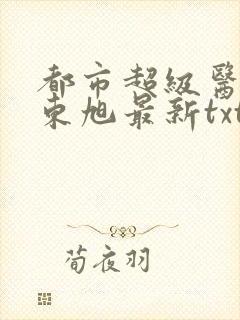 都市超級醫
東旭最新txt
荀夜羽